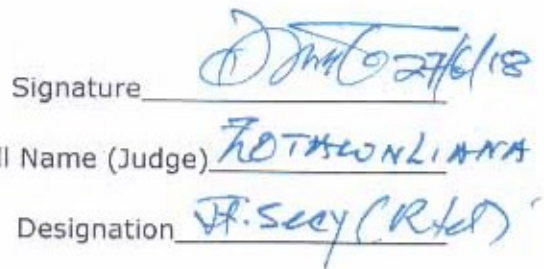 Signature 27/6/18
ll Name (Judge) ZOTHLUNLIANA
Designation Jt. Secy (Rtd)